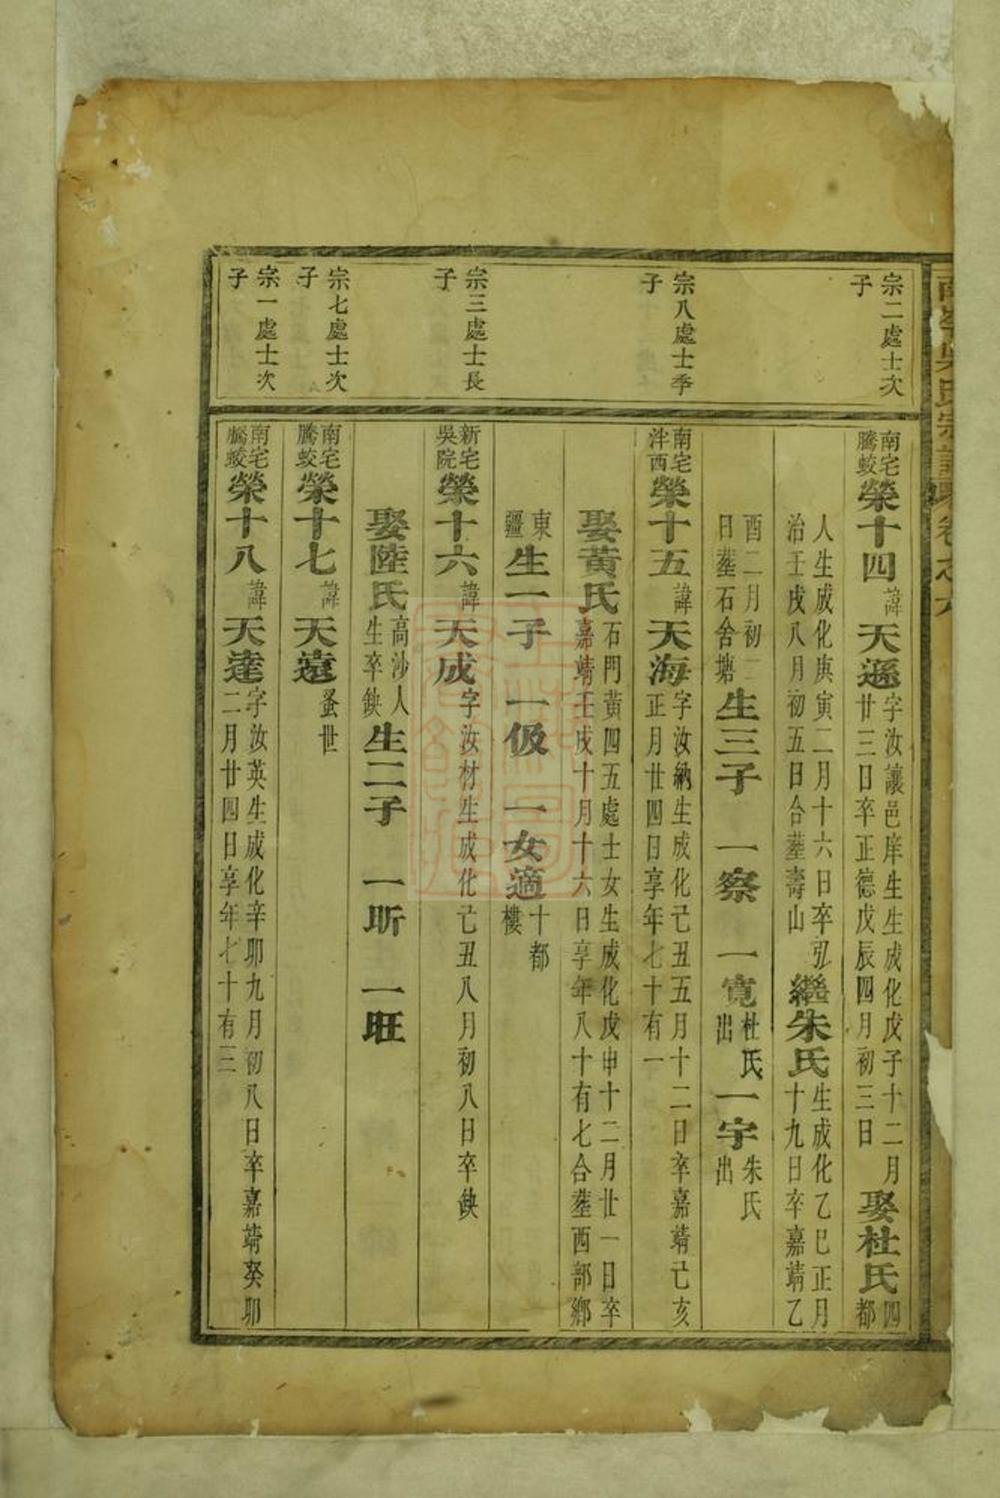 宗二處士次
子
南宅
騰蛟
榮十四
諱
天遜
字汝讓邑庠生生成化戊子十二月
廿三日卒正德戊辰四月初三日
娶杜氏
四
都
人生成化庚寅二月十六日卒弘
治壬戌八月初五日合塟壽山
繼朱氏
生成化乙巳正月
十九日卒嘉靖乙
酉二月初二
日塟石舍塘
生三子
一察
一寬
杜氏
出
一宇
朱氏
出
宗八處士季
子
南宅
泮西
榮十五
諱
天海
字汝納生成化己丑五月十二日卒嘉靖己亥
正月廿四日享年七十有一
娶黃氏
石門黃四五處士女生成化戊申十二月廿一日卒
嘉靖壬戌十月十六日享年八十有七合塟西部鄉
東
疆
生一子
一伋
一女適
十都
樓
宗三處士長
子
新宅
吳院
榮十六
諱
天成
字汝材生成化己丑八月初八日卒缺
娶陸氏
高沙人
生卒缺
生二子
一昕
一旺
宗七處士次
子
南宅
騰蛟
榮十七
諱
天遠
蚤世
宗一處士次
子
南宅
騰蛟
榮十八
諱
天達
字汝英生成化辛卯九月初八日卒嘉靖癸卯
二月廿四日享年七十有三